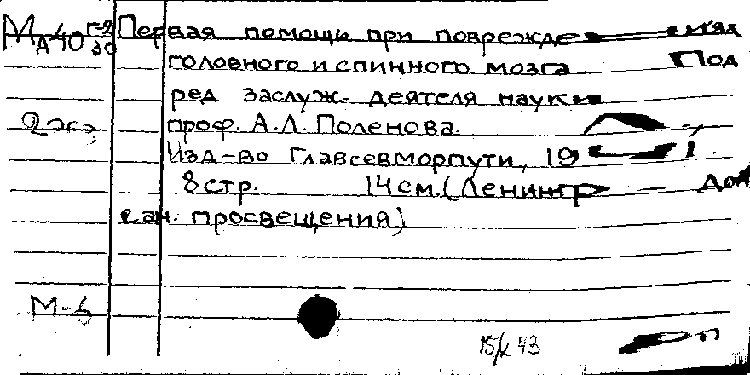 Первая помощь при поврежде
головного и спинного мозга Под
ред заслуж. деятеля науки
проф. А.Л. Поленова.
Изд-во Главсевморпути, 19
8 стр. 14 см. (Ленингр дом
сан. просвещения)
М-5
15/X 43